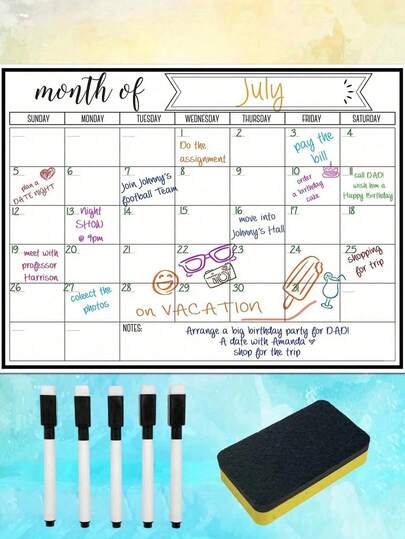 month of July
SUNDAY MONDAY TUESDAY WEDNESDAY THURSDAY FRIDAY SATURDAY
1 2 3 4
Do the
assignment
pay the
bill
5 6 7 8 9 10 11
plan a
DATE NIGHT
Join Johnny's
football Team
order
a birthday
cake
call DAD!
wish him a
Happy Birthday
12 13 14 15 16 17 18
Night
SHOW
@ 9pm
move into
Johnny's Hall
19 20 21 22 23 24 25
meet with
professor
Harrison
shopping
for trip
26 27 28 29 30 31
colect the
photos
on VACATION
NOTES:
Arrange a big birthday party for DAD!
A date with Amanda
shop for the trip